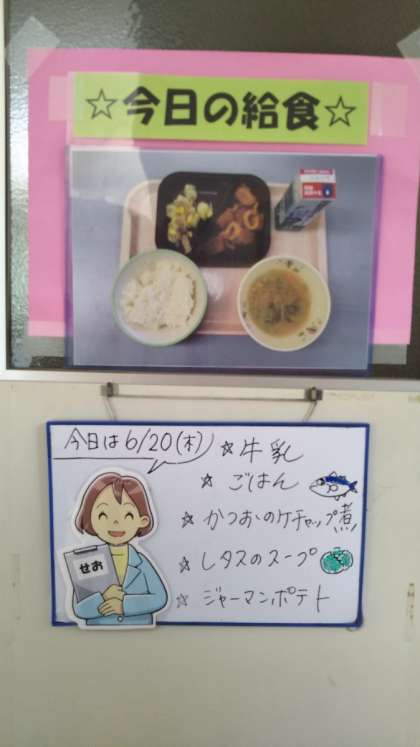 ☆今日の給食☆
今日は6/20(木)
☆牛乳
☆ごはん
☆かつおのケチャップ煮
☆レタスのスープ
☆ジャーマンポテト
せお